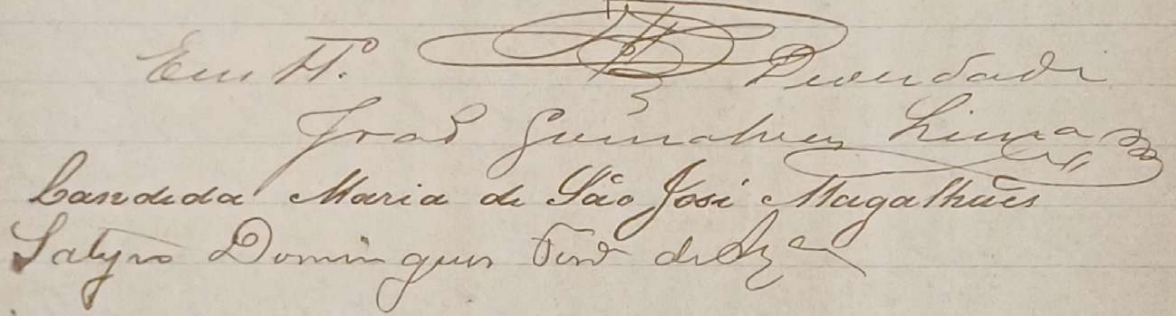 Em T.º de Verdade
João Gonçalves Lima
Candida Maria de São José Magalhães
Satyro Domingues